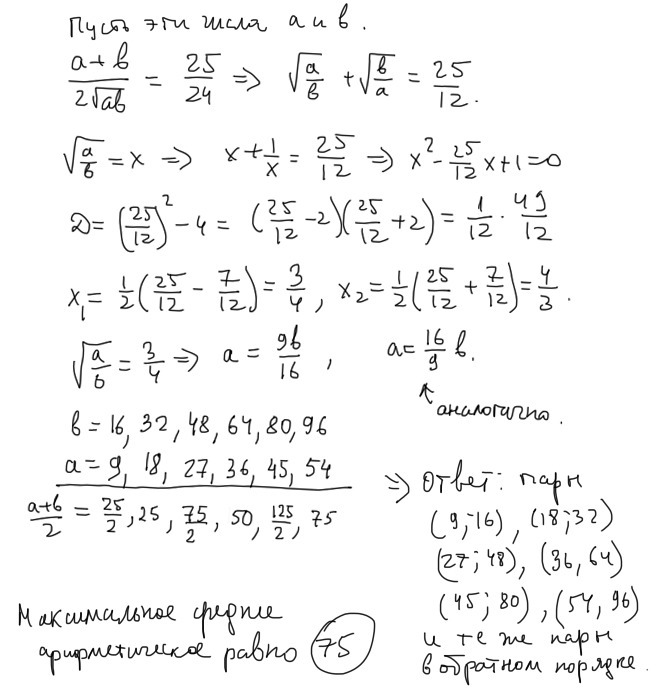 Пусть эти числа a и b.
(a+b)/(2√ab) = 25/24 => √(a/b) + √(b/a) = 25/12.
√(a/b) = x => x + 1/x = 25/12 => x² - 25/12 x + 1 = 0
D = (25/12)² - 4 = (25/12 - 2)(25/12 + 2) = 1/12 · 49/12
x₁ = 1/2 (25/12 - 7/12) = 3/4, x₂ = 1/2 (25/12 + 7/12) = 4/3.
√(a/b) = 3/4 => a = 9b/16, a = 16/9 b.
↑ аналогично.
b = 16, 32, 48, 64, 80, 96
a = 9, 18, 27, 36, 45, 54
(a+b)/2 = 25/2, 25, 75/2, 50, 125/2, 75
=> Ответ: пары
(9;16), (18;32)
(27;48), (36,64)
(45;80), (54,96)
и те же пары
в обратном порядке.
Максимальное среднее
арифметическое равно 75